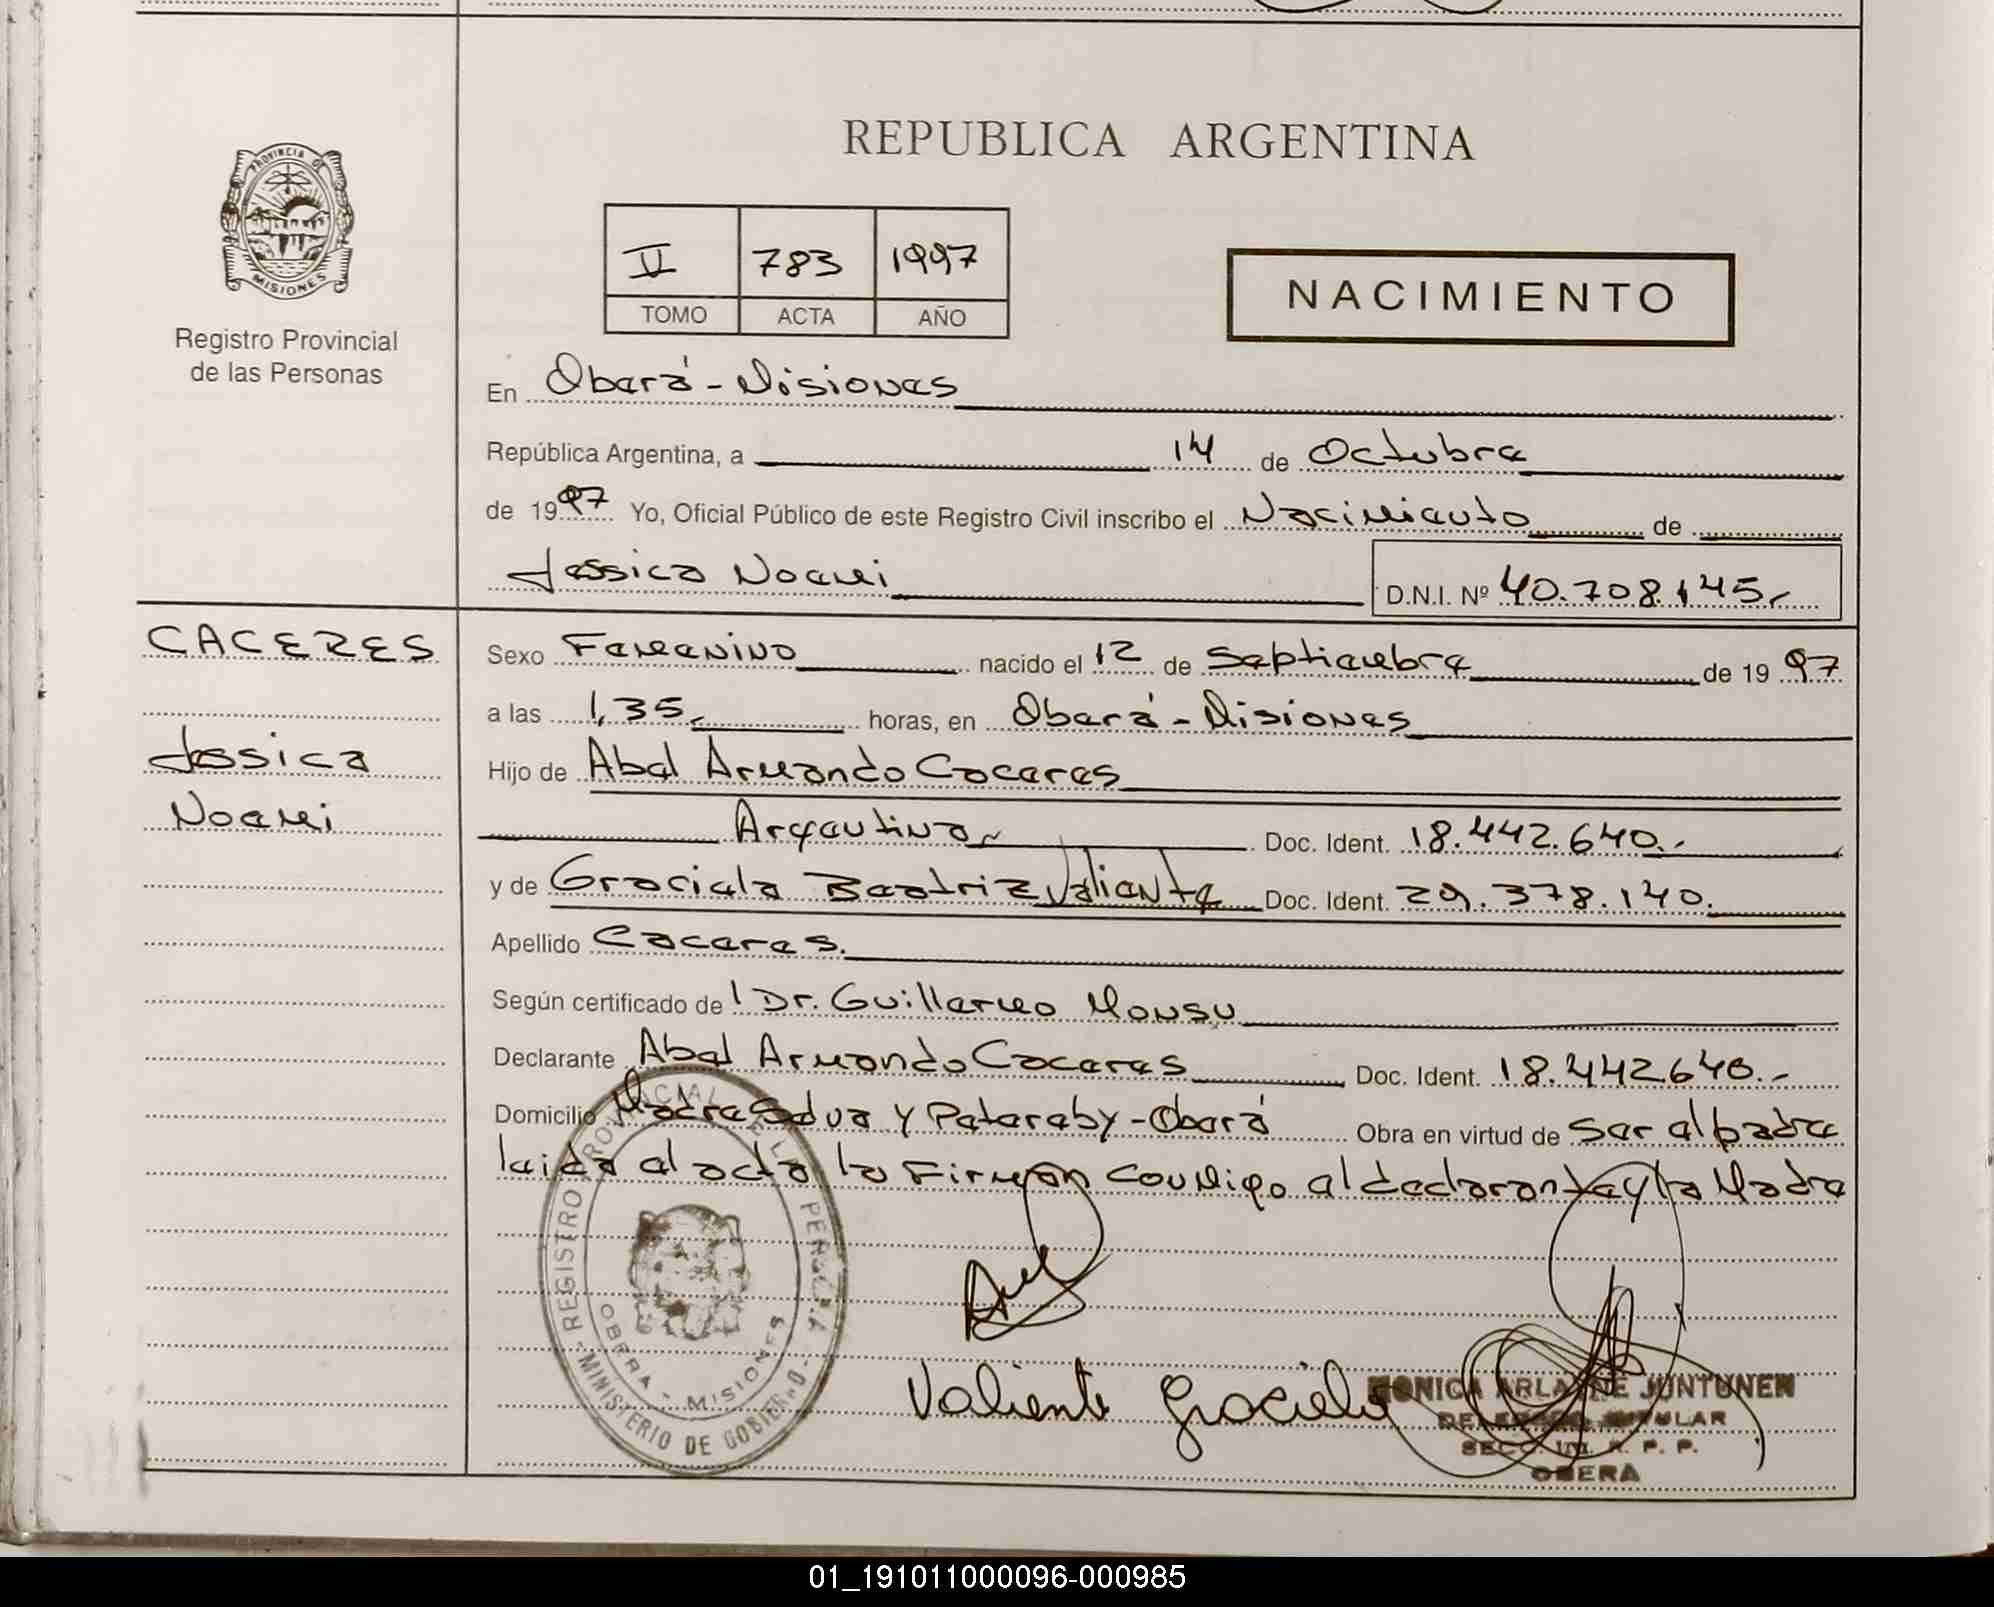 REPUBLICA ARGENTINA
PROVINCIA DE
MISIONES
Registro Provincial
de las Personas
II 783 1997
TOMO ACTA AÑO
NACIMIENTO
En Oberá - Misiones
República Argentina, a 14 de Octubre
de 1997 Yo, Oficial Público de este Registro Civil inscribo el Nacimiento de
Jessica Noemi D.N.I. Nº 40.708.145.-
CACERES
Jessica
Noemi
Sexo Femenino nacido el 12 de Septiembre de 1997
a las 1,35.- horas, en Oberá - Misiones
Hijo de Abel Armando Caceres
Argentina Doc. Ident. 18.442.640.-
y de Graciela Beatriz Valiente Doc. Ident. 29.378.140.
Apellido Caceres.
Según certificado de l Dr. Guillermo Monsu
Declarante Abel Armando Caceres Doc. Ident. 18.442640.-
Domicilio Padre Sedva y Pateraby - Oberá Obra en virtud de Ser el padre
leida el acta la Firman conmigo el declarante y la Madre
REGISTRO PROVINCIAL DE LAS PERSONAS
OBERA - MISIONES
- MINISTERIO DE GOBIERNO -
Valiente Graciela
MONICA ARLA DE JUNTUNEN
TITULAR
SECC. R. P. P.
OBERA
01_191011000096-000985